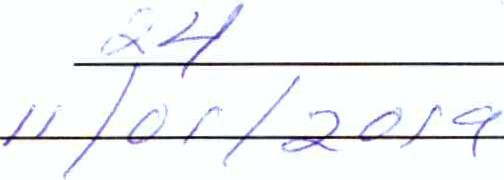 24
11/01/2019